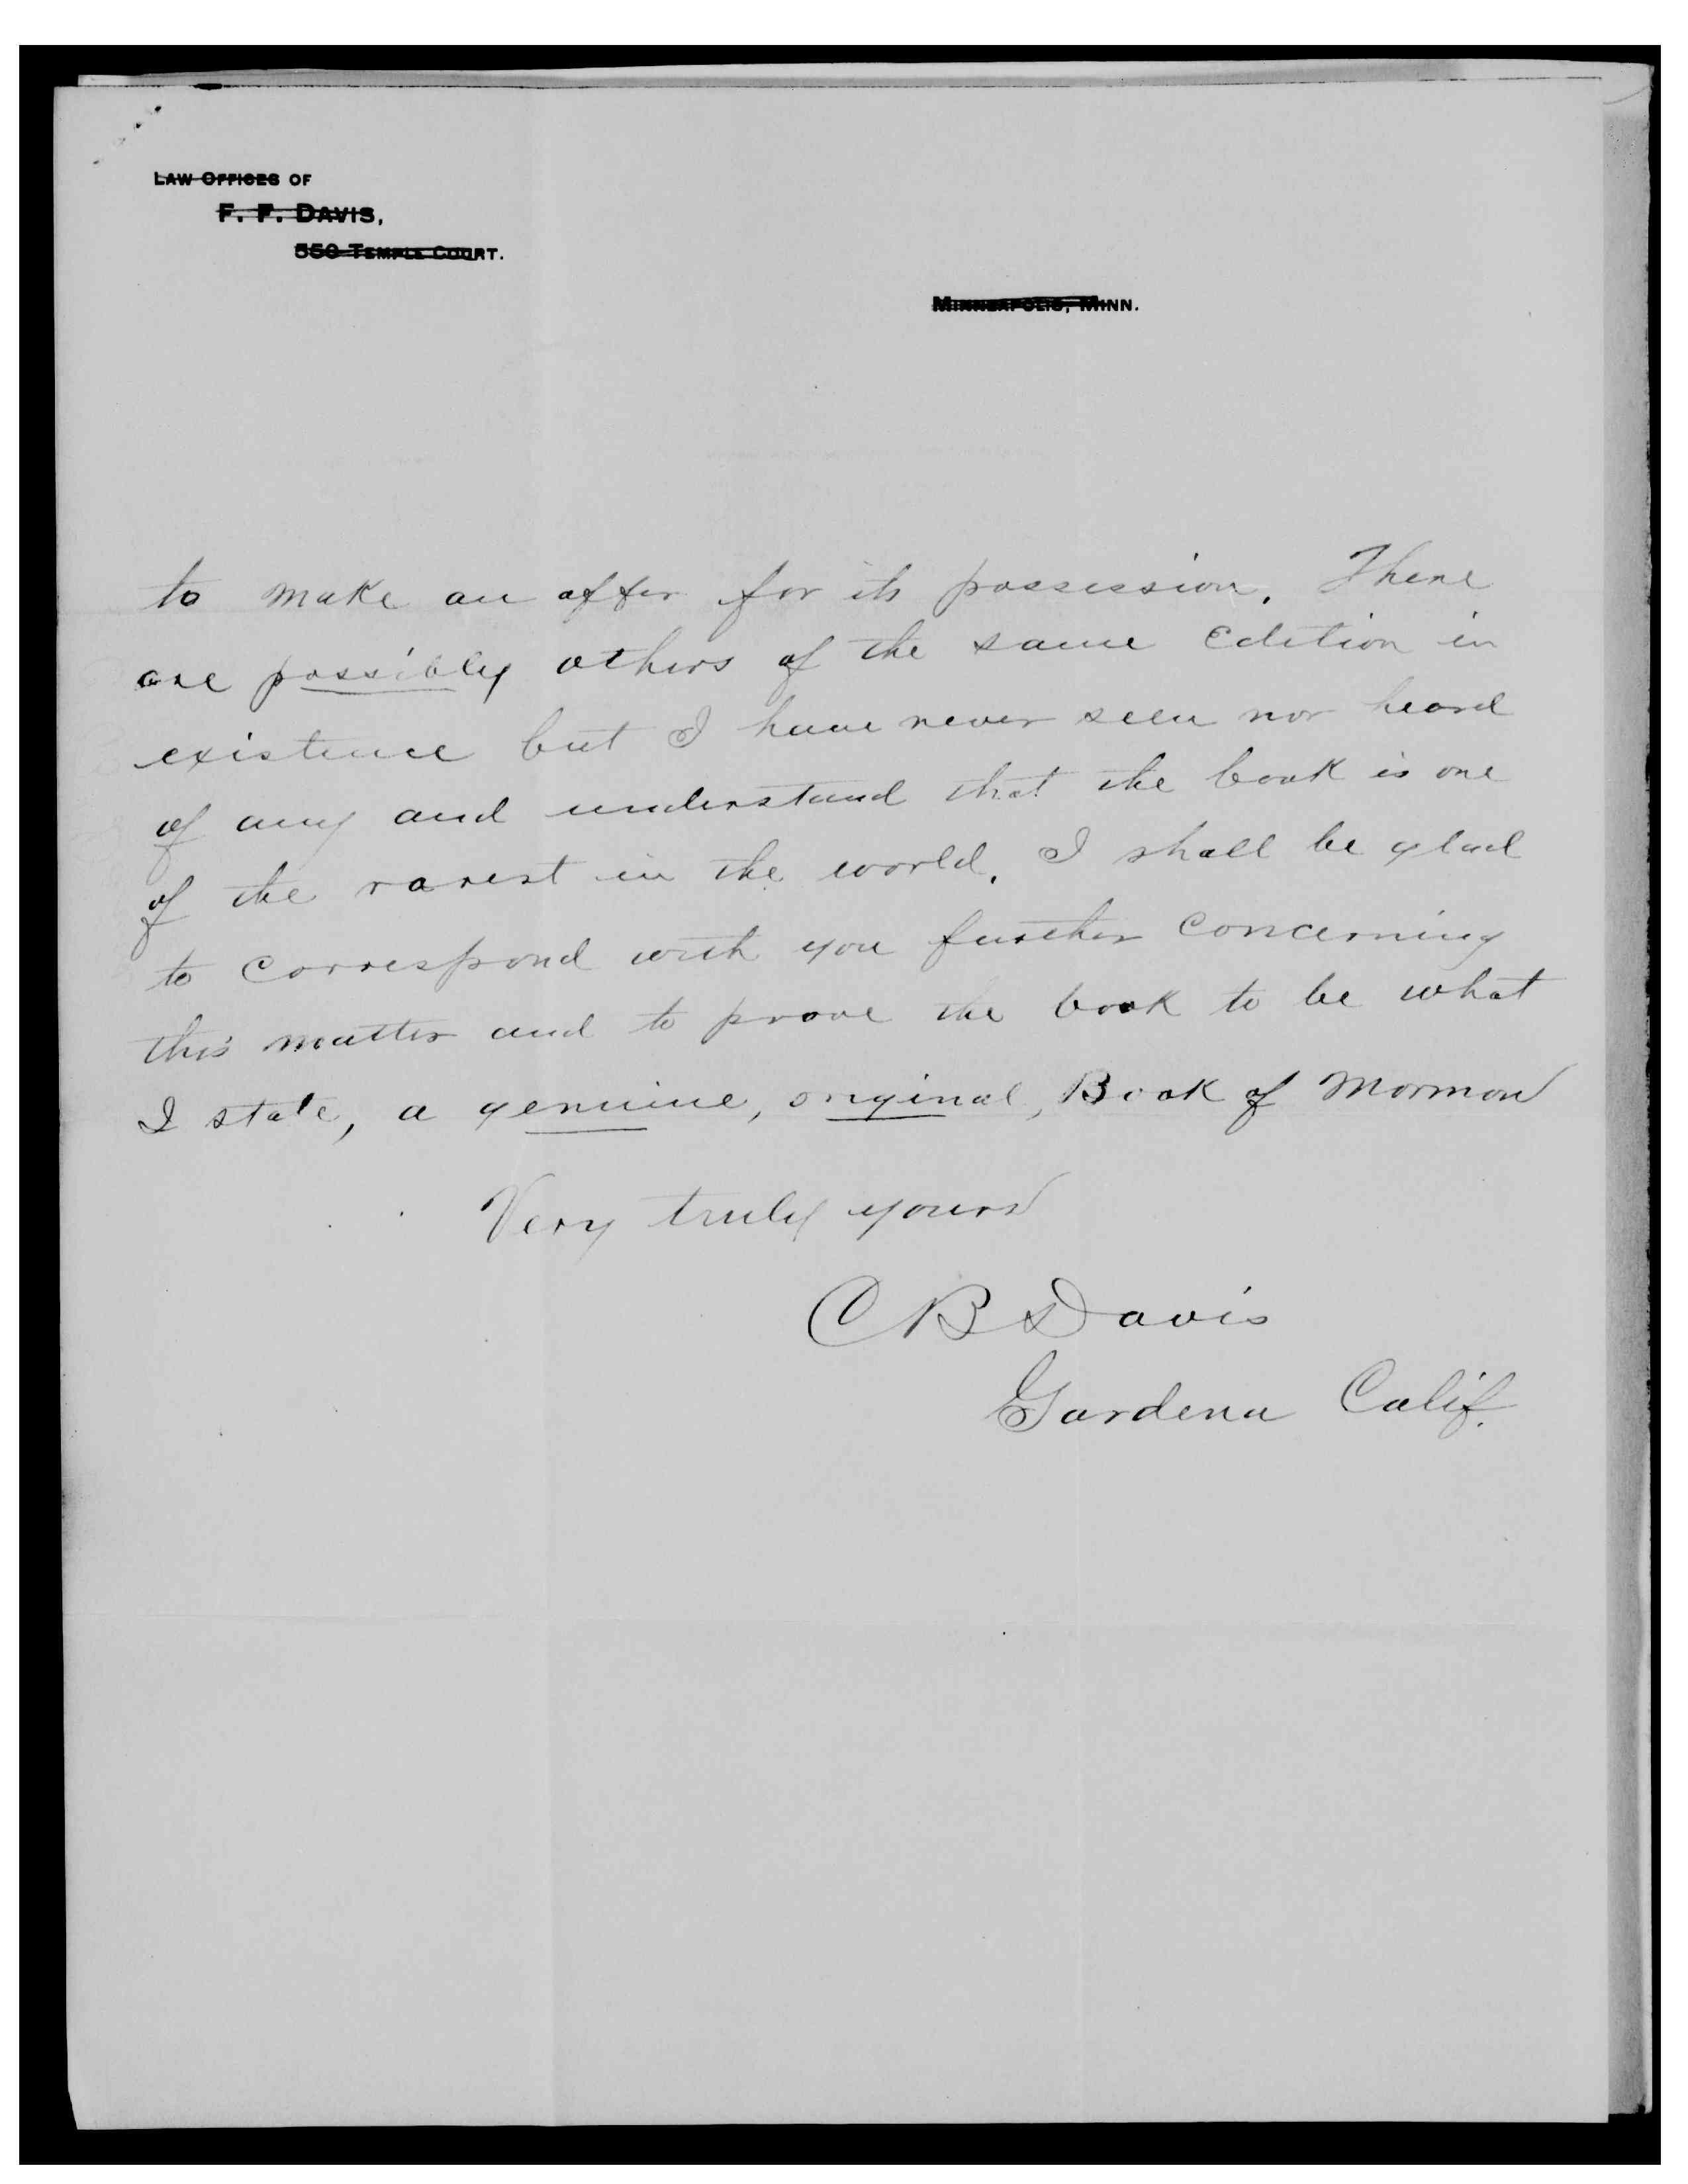 LAW OFFICES OF
F. F. DAVIS,
550 TEMPLE COURT.
MINNEAPOLIS, MINN.
to make an offer for its possession. There
are possibly others of the same Edition in
existence but I have never seen nor heard
of any and understand that the book is one
of the rarest in the world. I shall be glad
to correspond with you further concerning
this matter and to prove the book to be what
I state, a genuine, original, Book of Mormon
Very truly yours
C B Davis
Gardena Calif.